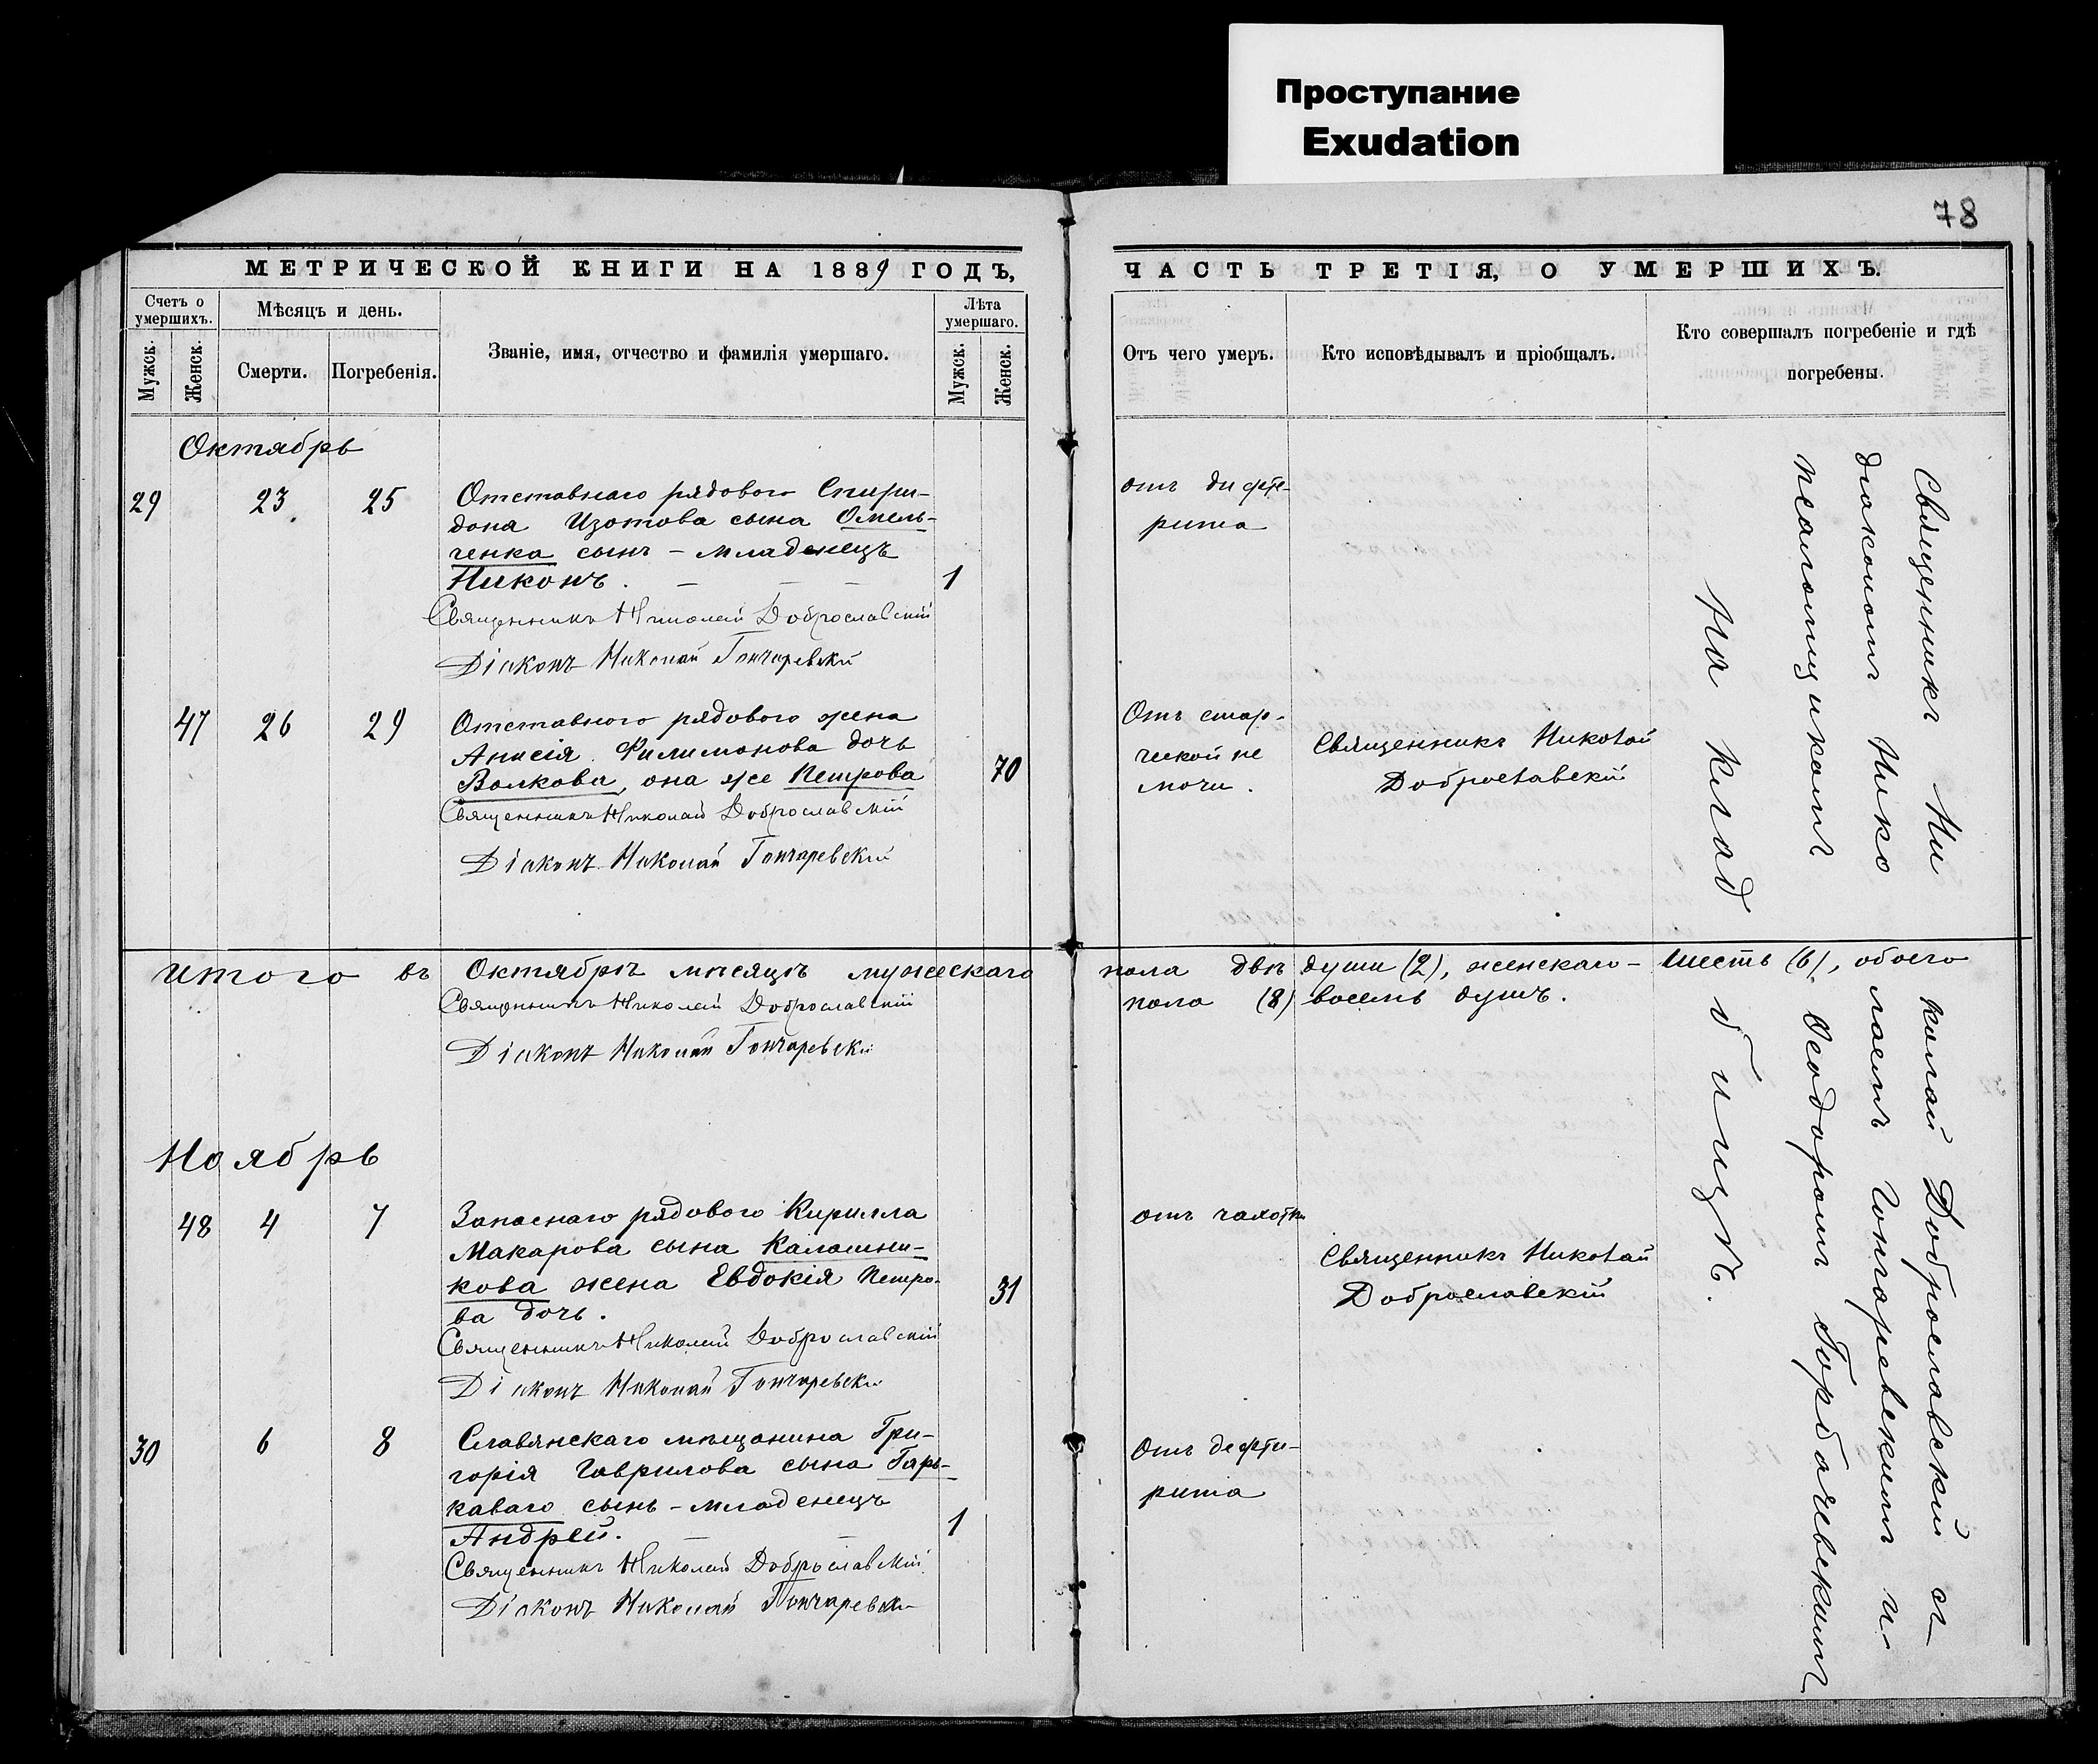 Проступание
Exudation
78
МЕТРИЧЕСКОЙ КНИГИ НА 1889 ГОДЪ,
Счетъ о умершихъ.
Мужск.
Женск.
Мѣсяцъ и день.
Смерти.
Погребенія.
Званіе, имя, отчество и фамилія умершаго.
Лѣта умершаго.
Мужск.
Женск.
Октябрь
29 23 25 Отставнаго рядового Спири-
дона Изотова сына Омель-
ченка сынъ – младенецъ
Никонъ. – – – 1
Священникъ Николай Доброславскій
Діаконъ Николай Гончаревскій
47 26 29 Отставного рядового жена
Анисія Филимонова дочь
Волкова, она же Петрова 70
Священникъ Николай Доброславскій
Діаконъ Николай Гончаревскій
Итого въ Октябрѣ мѣсяцѣ мужескаго
Священникъ Николай Доброславскій
Діаконъ Николай Гончаревскій
Ноябрь
48 4 7 Запаснаго рядового Кирилла
Макарова сына Калашни-
кова жена Евдокія Петро- 31
ва дочь.
Священникъ Николай Доброславскій
Діаконъ Николай Гончаревскій
30 6 8 Славянскаго мѣщанина Гри-
горія Гаврилова сына Гарь-
каваго сынъ – младенецъ
Андрей. – – 1
Священникъ Николай Доброславскій
Діаконъ Николай Гончаревскій
ЧАСТЬ ТРЕТІЯ, О УМЕРШИХЪ.
Отъ чего умеръ.
Кто исповѣдывалъ и пріобщалъ.
Кто совершалъ погребеніе и гдѣ
погребены.
отъ дифте-
рита
Отъ стар-
ческой не
мочи.
Священникъ Николай
Доброславскій
пола двѣ души (2), женскаго – шесть (6), обоего
пола (8) восемь душъ.
отъ чахотки
Священникъ Николай
Доброславскій
Отъ дефти-
рита
Священникъ Николай Доброславскій съ
діакономъ Николаемъ Гончаревскимъ и
псаломщикомъ Ѳеодоромъ Горбачевскимъ
На кладбищѣ.